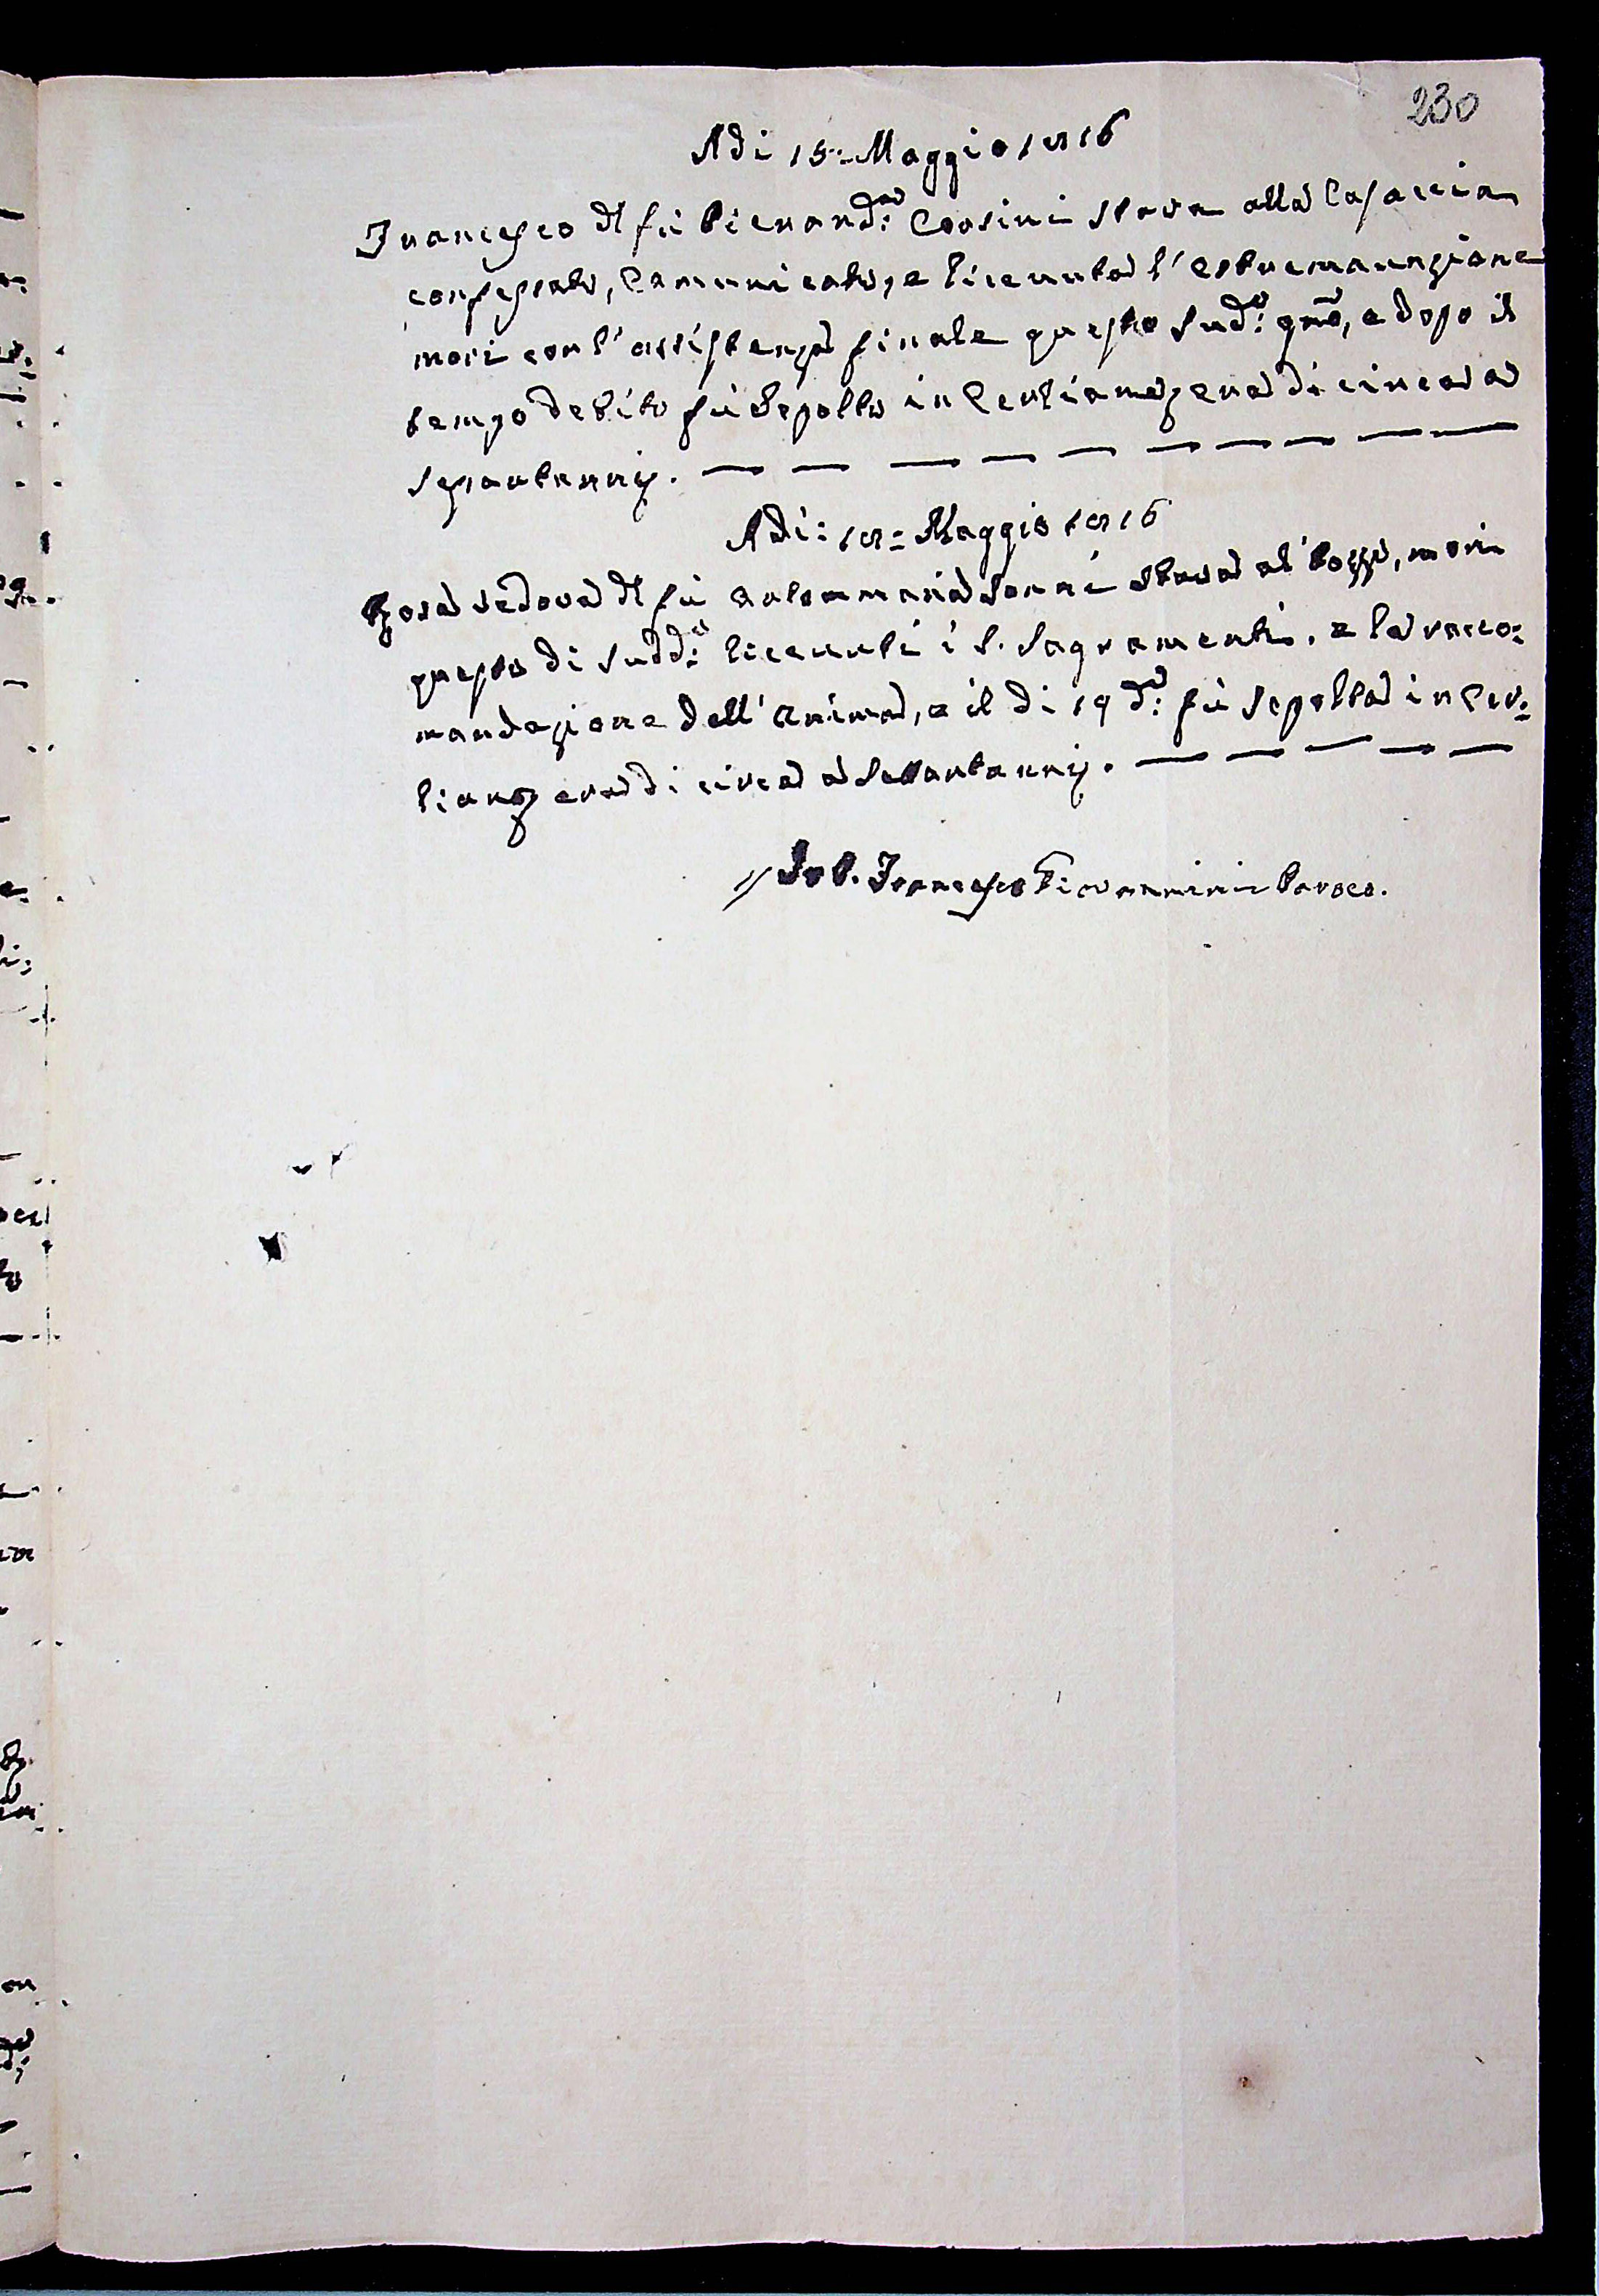 230
Adi 15: Maggio 1816
Francesco dl fù Pierand:ᵃ Corsini stava alla Casaccia
confessato, Comunicato, e Riceuuta l'estremaunzione
mori con l'assistenza finale questo sud:º gnõ, e dopo il
tempo debito fù Sepolto in Cerliano, era di circa a
sessantanni.
Adi: 18: Maggio 1816
Rosa vedova dl fù Antommaria stava al Pozzo, mori
questo di sudd:º Riceuuti i S. Sagramenti, e la racco:
mandazione dell'Anima, e il di 19 d:º fù sepolta in Cer:
liano, era di circa a Settantanni.
Francesco Giovannini Paroco.